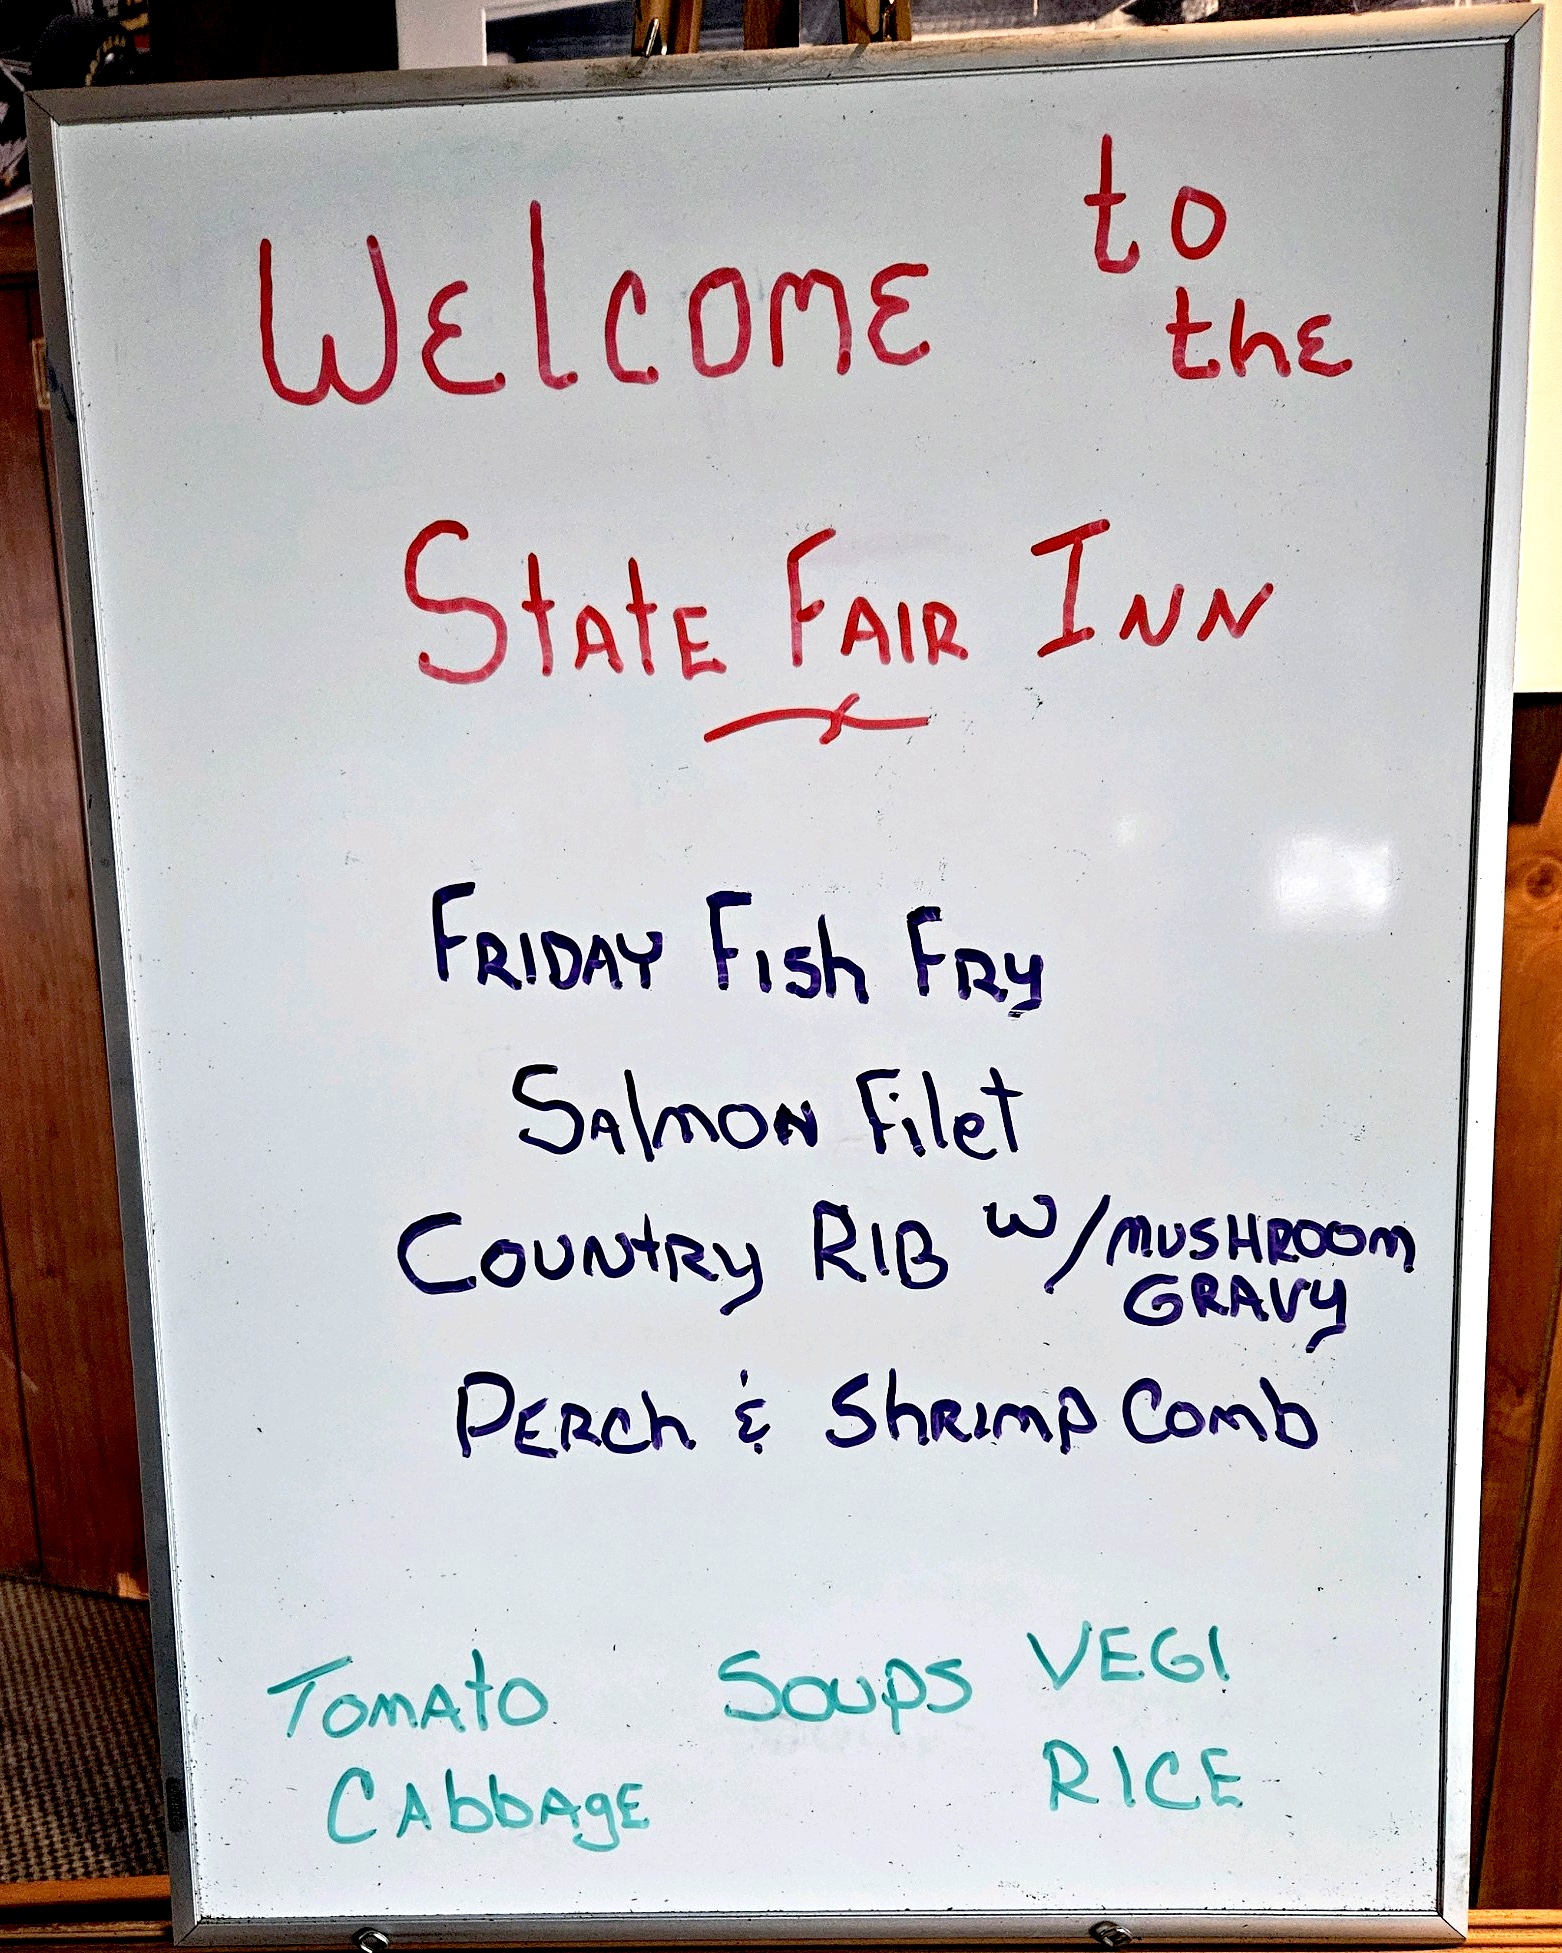 Welcome to
the
State Fair Inn
Friday Fish Fry
Salmon Filet
Country Rib w/mushroom
gravy
Perch & Shrimp Comb
Tomato Soups Vegi
Cabbage Rice